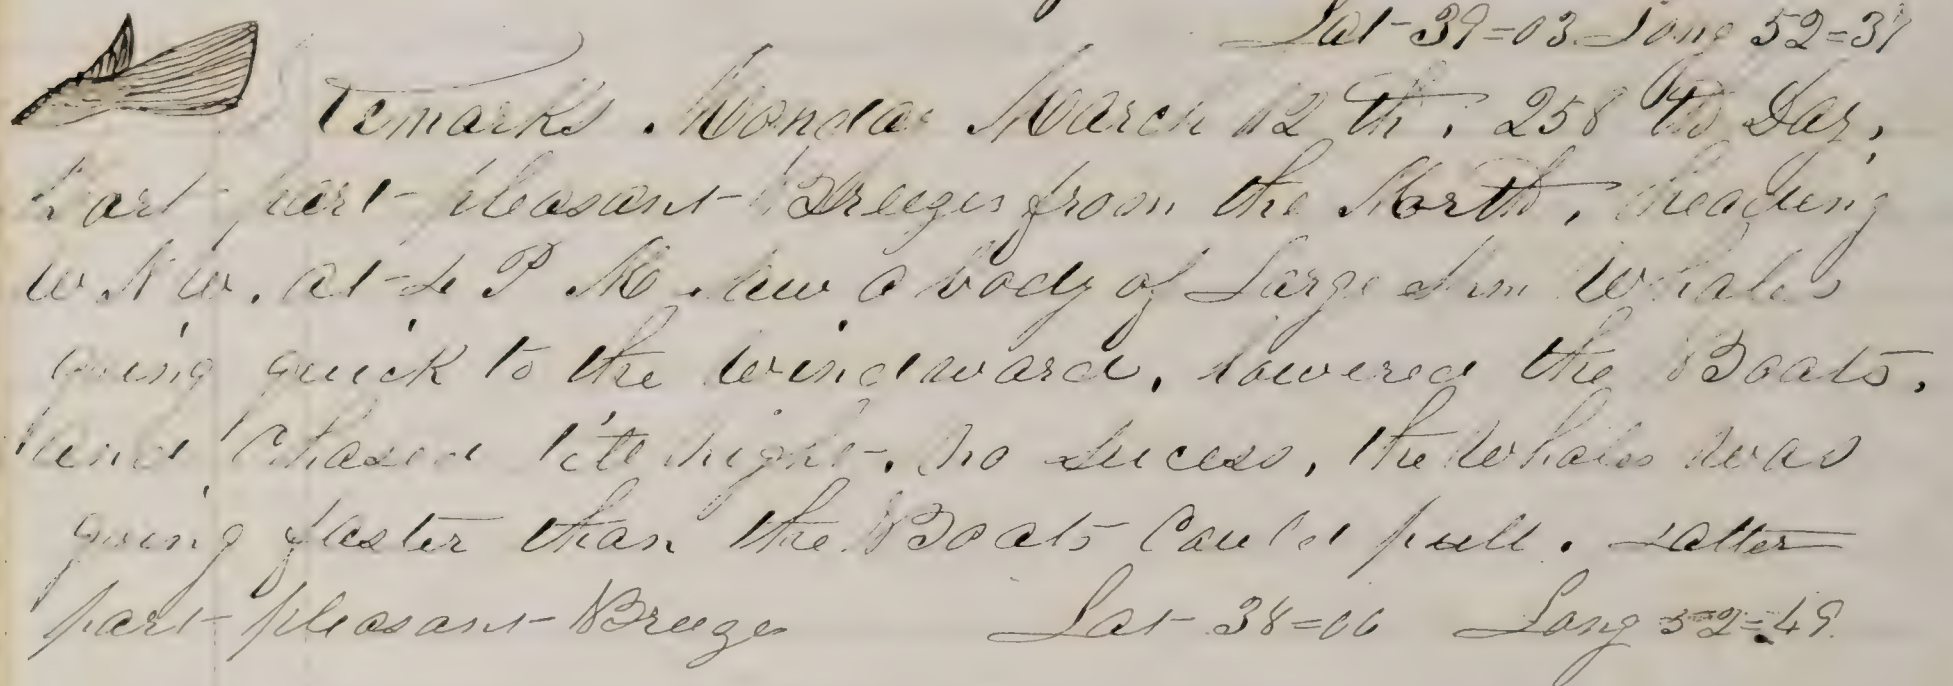 Lat 39=03 Long 52=31
Remarks Monday March 12th, 258th Day,
part pleasant Breezes from the North, heading
W N W. at 4 P M saw a body of Large Whales
going quick to the windward, lowered the Boats,
and Chased till night, no sucess, the Whales was
going faster than the Boats Could pull. Latter
part pleasant Breezes Lat 38=06 Long 52=49